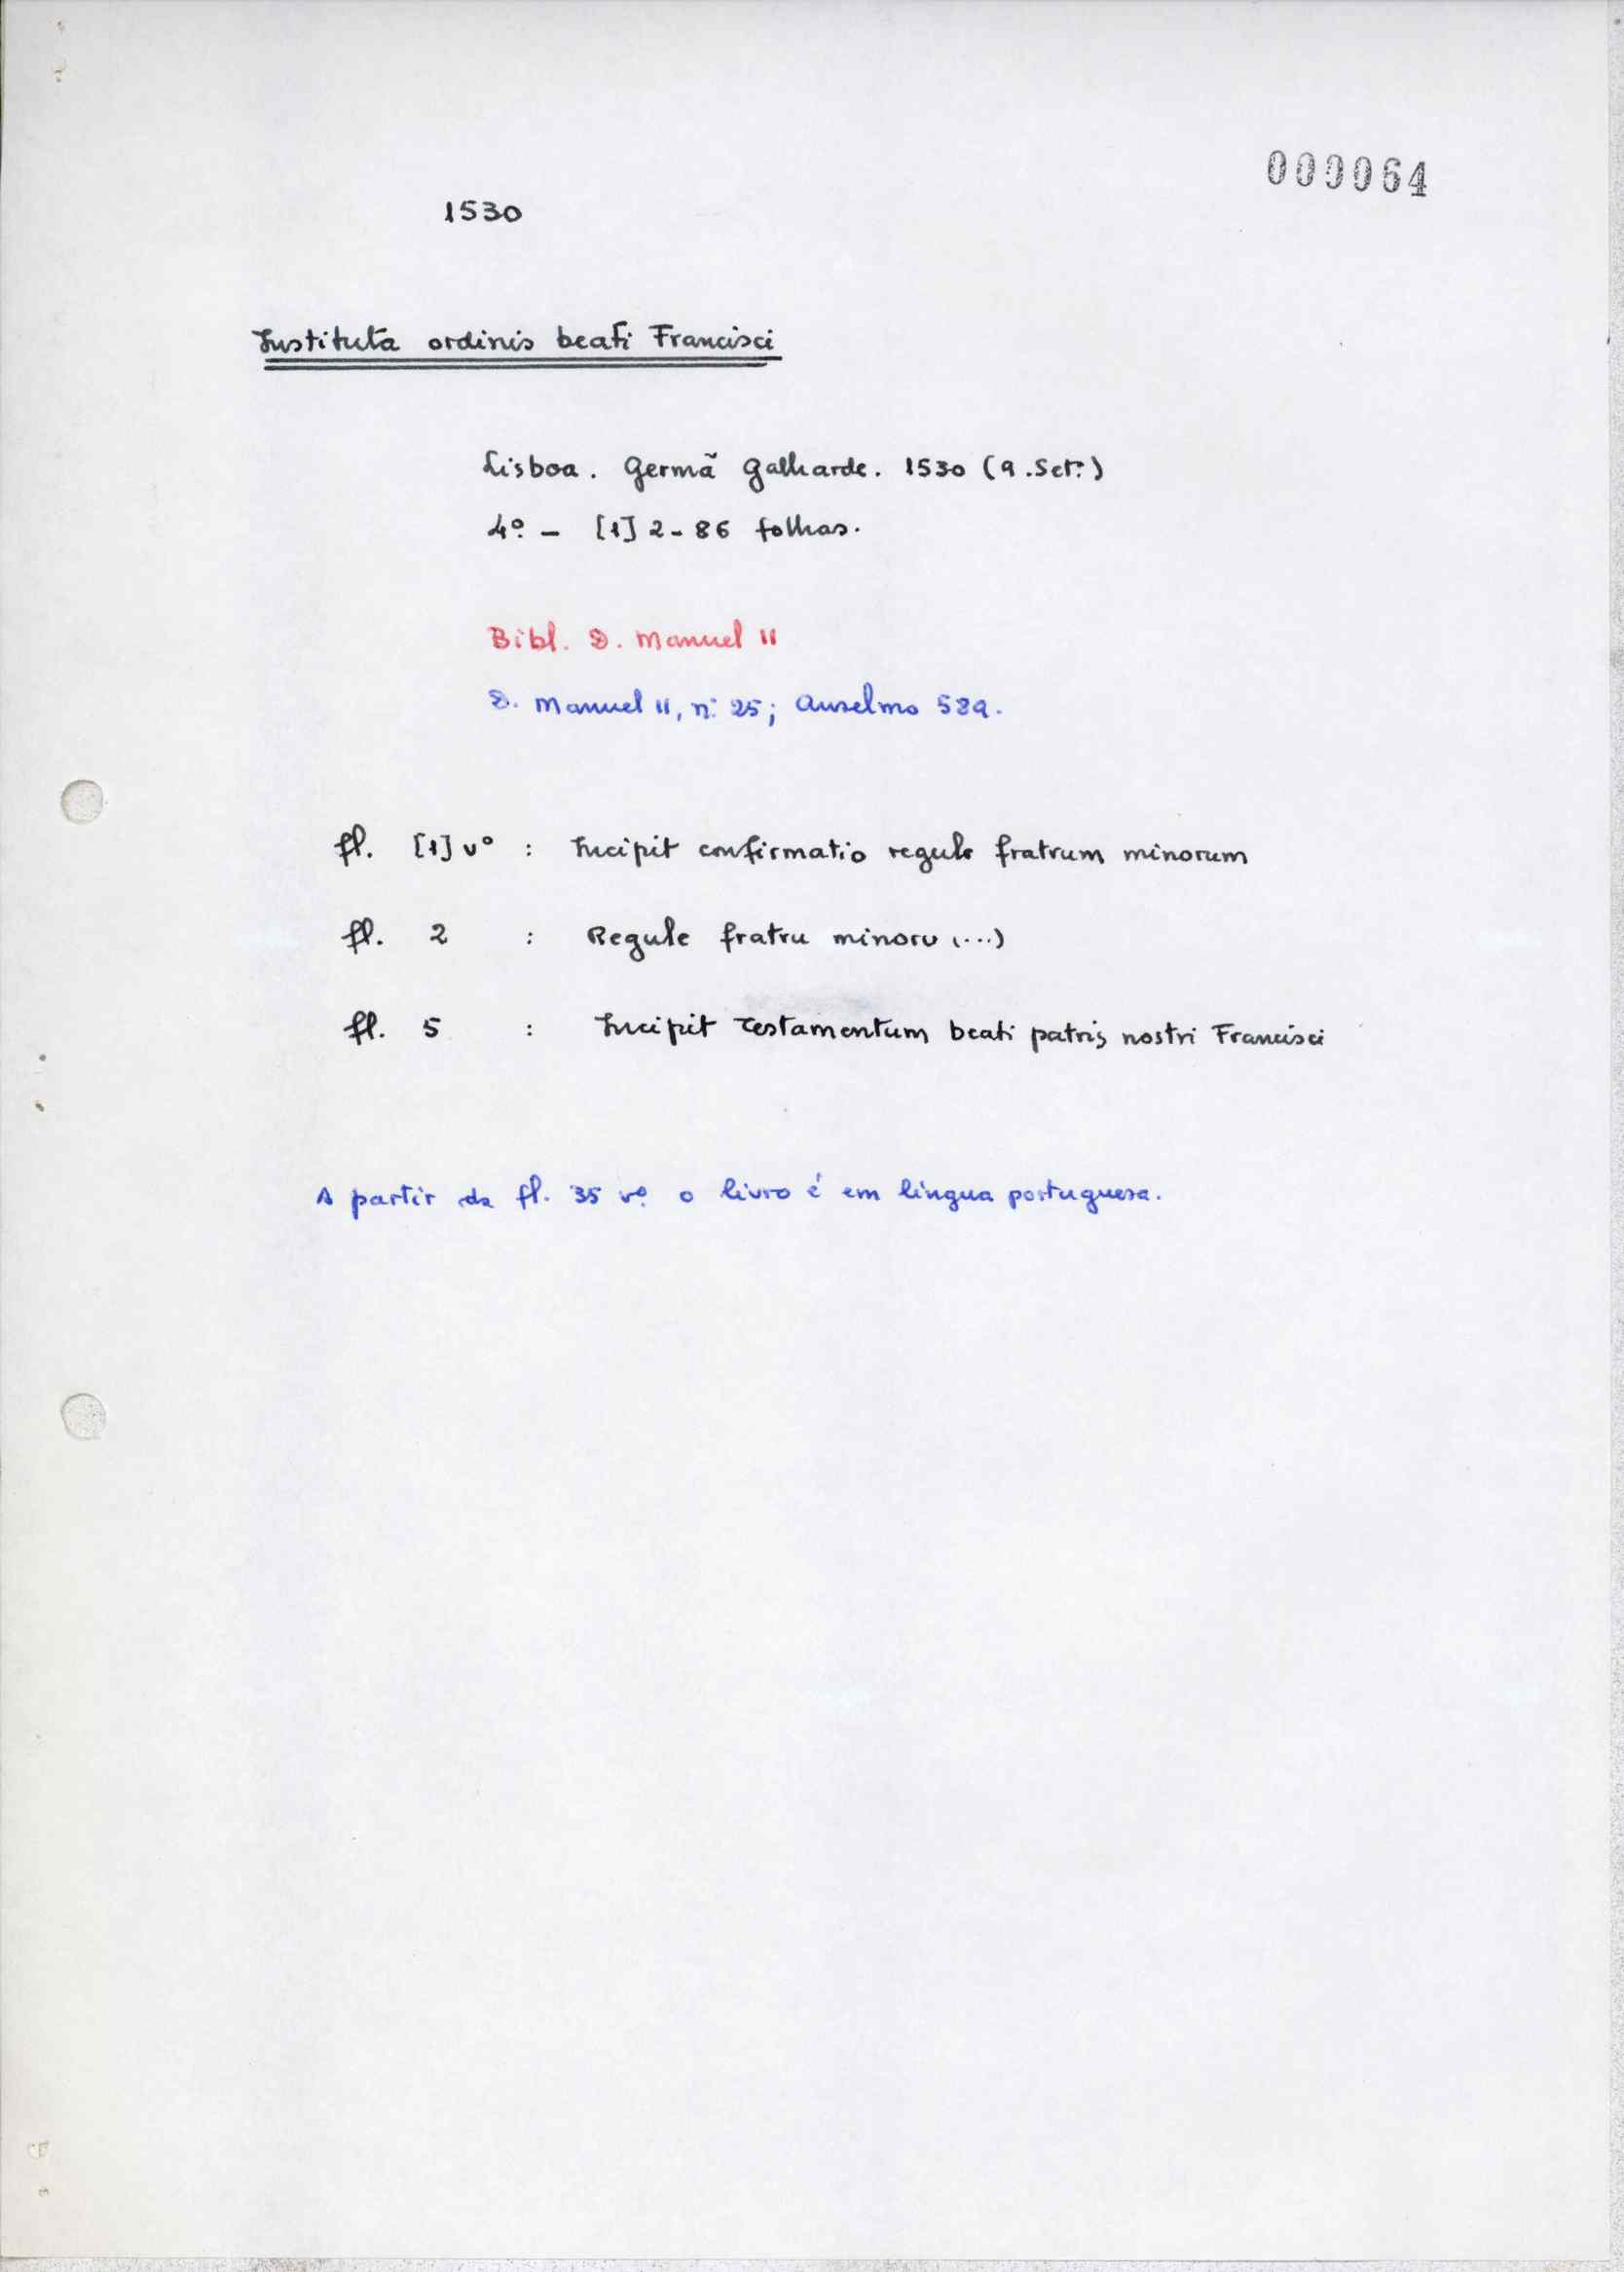 000064
1530
Instituta ordinis beati Francisci
Lisboa. Germã Galharde. 1530 (9.Set.)
4º - [1] 2-86 folhas.
Bibl. D. Manuel II
D. Manuel II, nº 25; Anselmo 589.
fl. [1] vº : Incipit confirmatio regule fratrum minorum
fl. 2 : Regule fratru minoru (...)
fl. 5 : Incipit Testamentum beati patris nostri Francisci
A partir da fl. 35 vº o livro é em língua portuguesa.